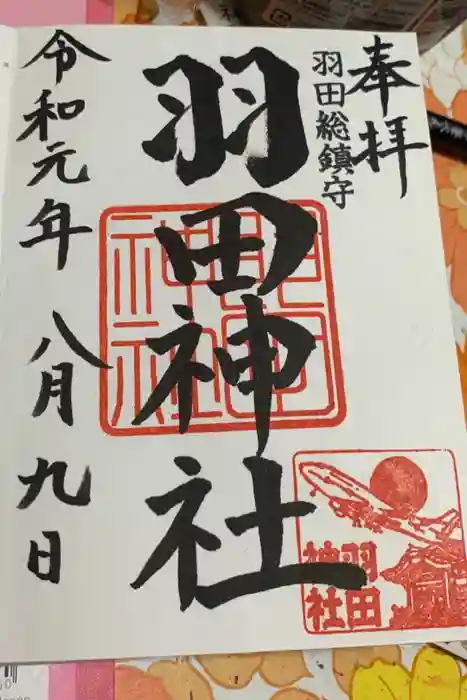 奉拝
羽田総鎮守
羽田神社
令和元年 八月九日
羽田神社
羽田
神社